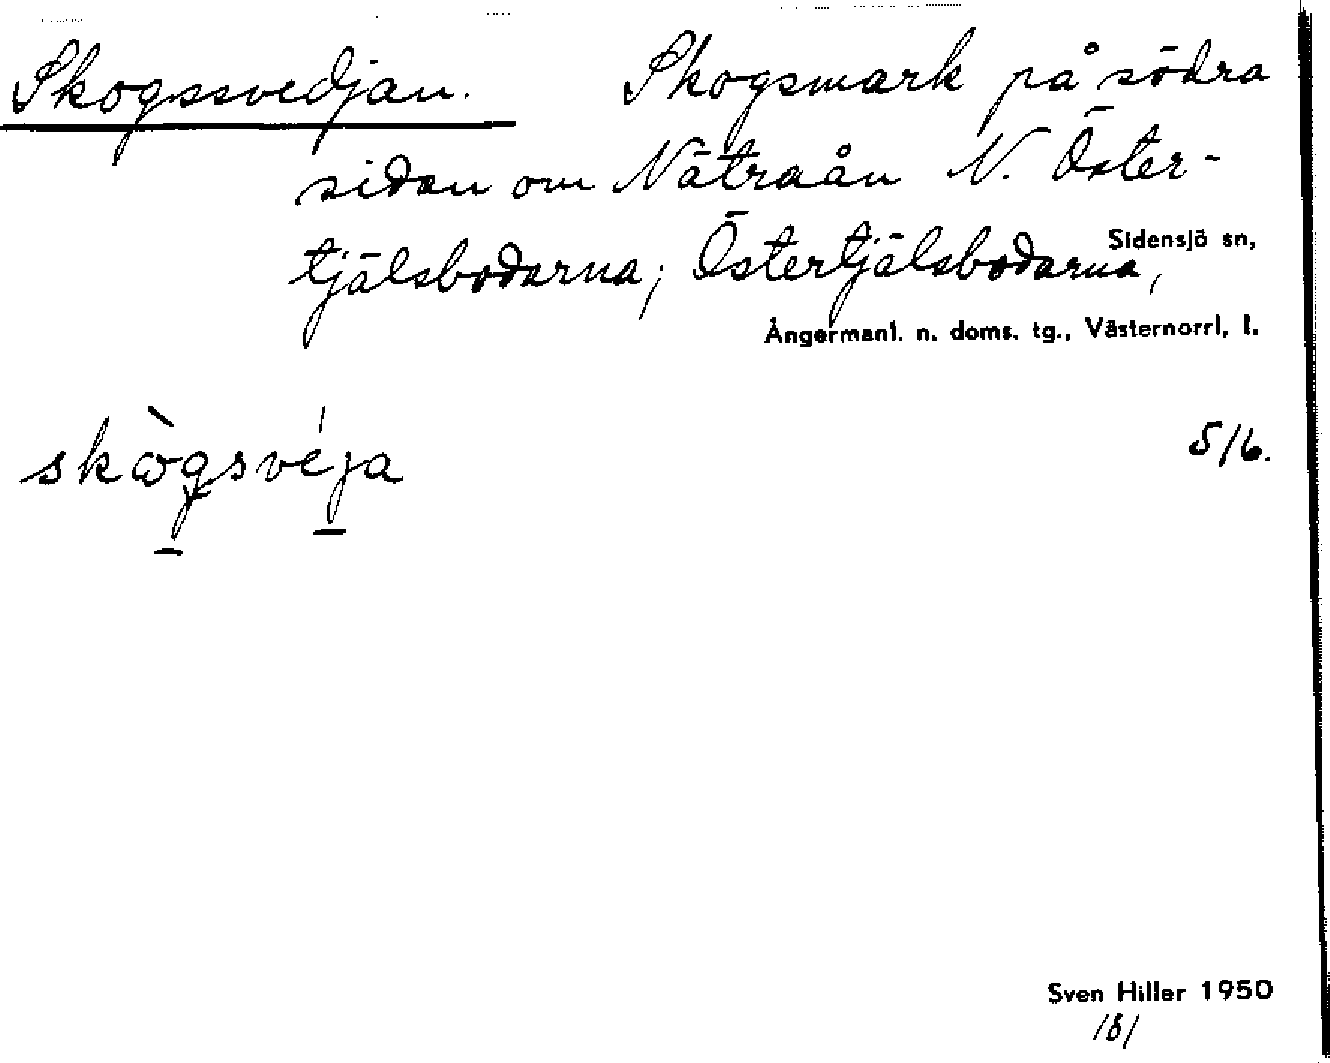 Skogssvedjan. Skogsmark på södra
sidan om Nätraån N. Öster-
tjälsbodarna; Östertjälsbodarna,
Sidensjö sn,
Ångermanl. n. doms. tg., Västernorrl, l.
5/6.
Sven Hiller 1950
181